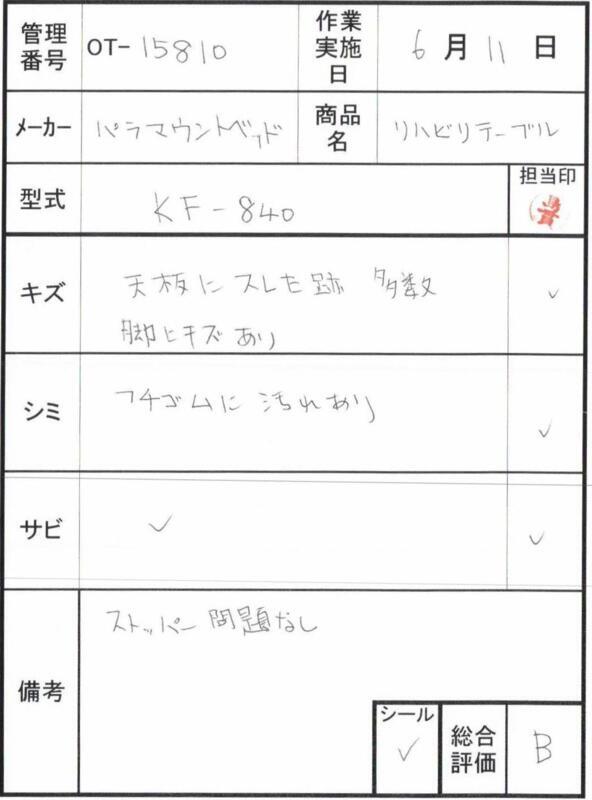 管理番号 OT-15810 作業実施日 6月11日
メーカー パラマウントベッド 商品名 リハビリテーブル
型式 KF-840 担当印
キズ 天板にスレた跡 多数 ✓
脚にキズあり
シミ フチゴムに汚れあり ✓
サビ ✓ ✓
備考 ストッパー問題なし
シール ✓ 総合評価 B